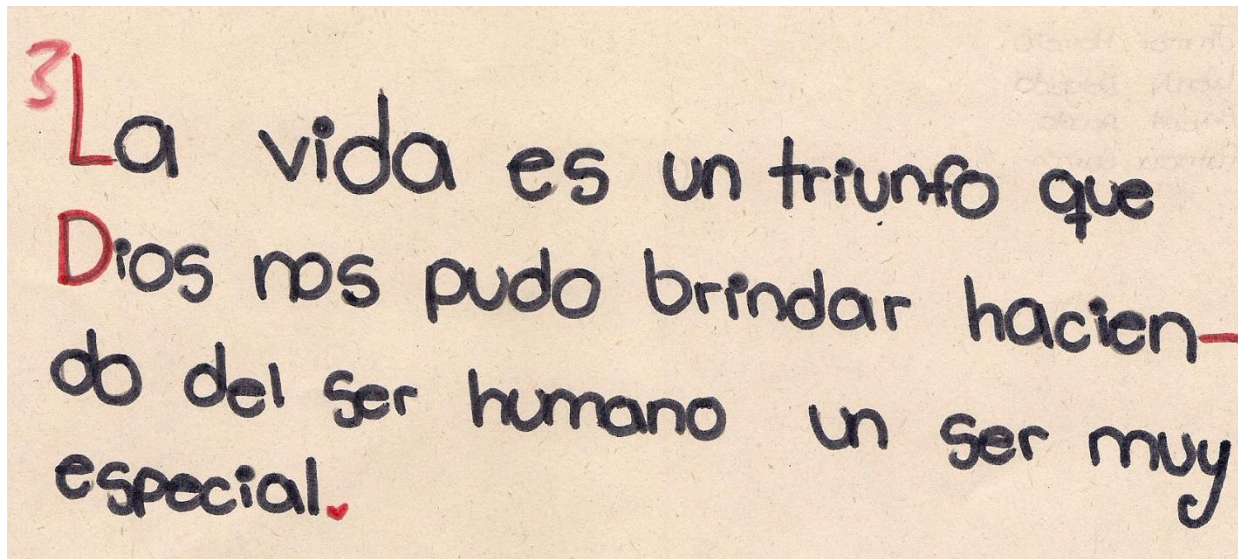 3 La vida es un triunfo que
Dios nos pudo brindar hacien-
do del ser humano un ser muy
especial.